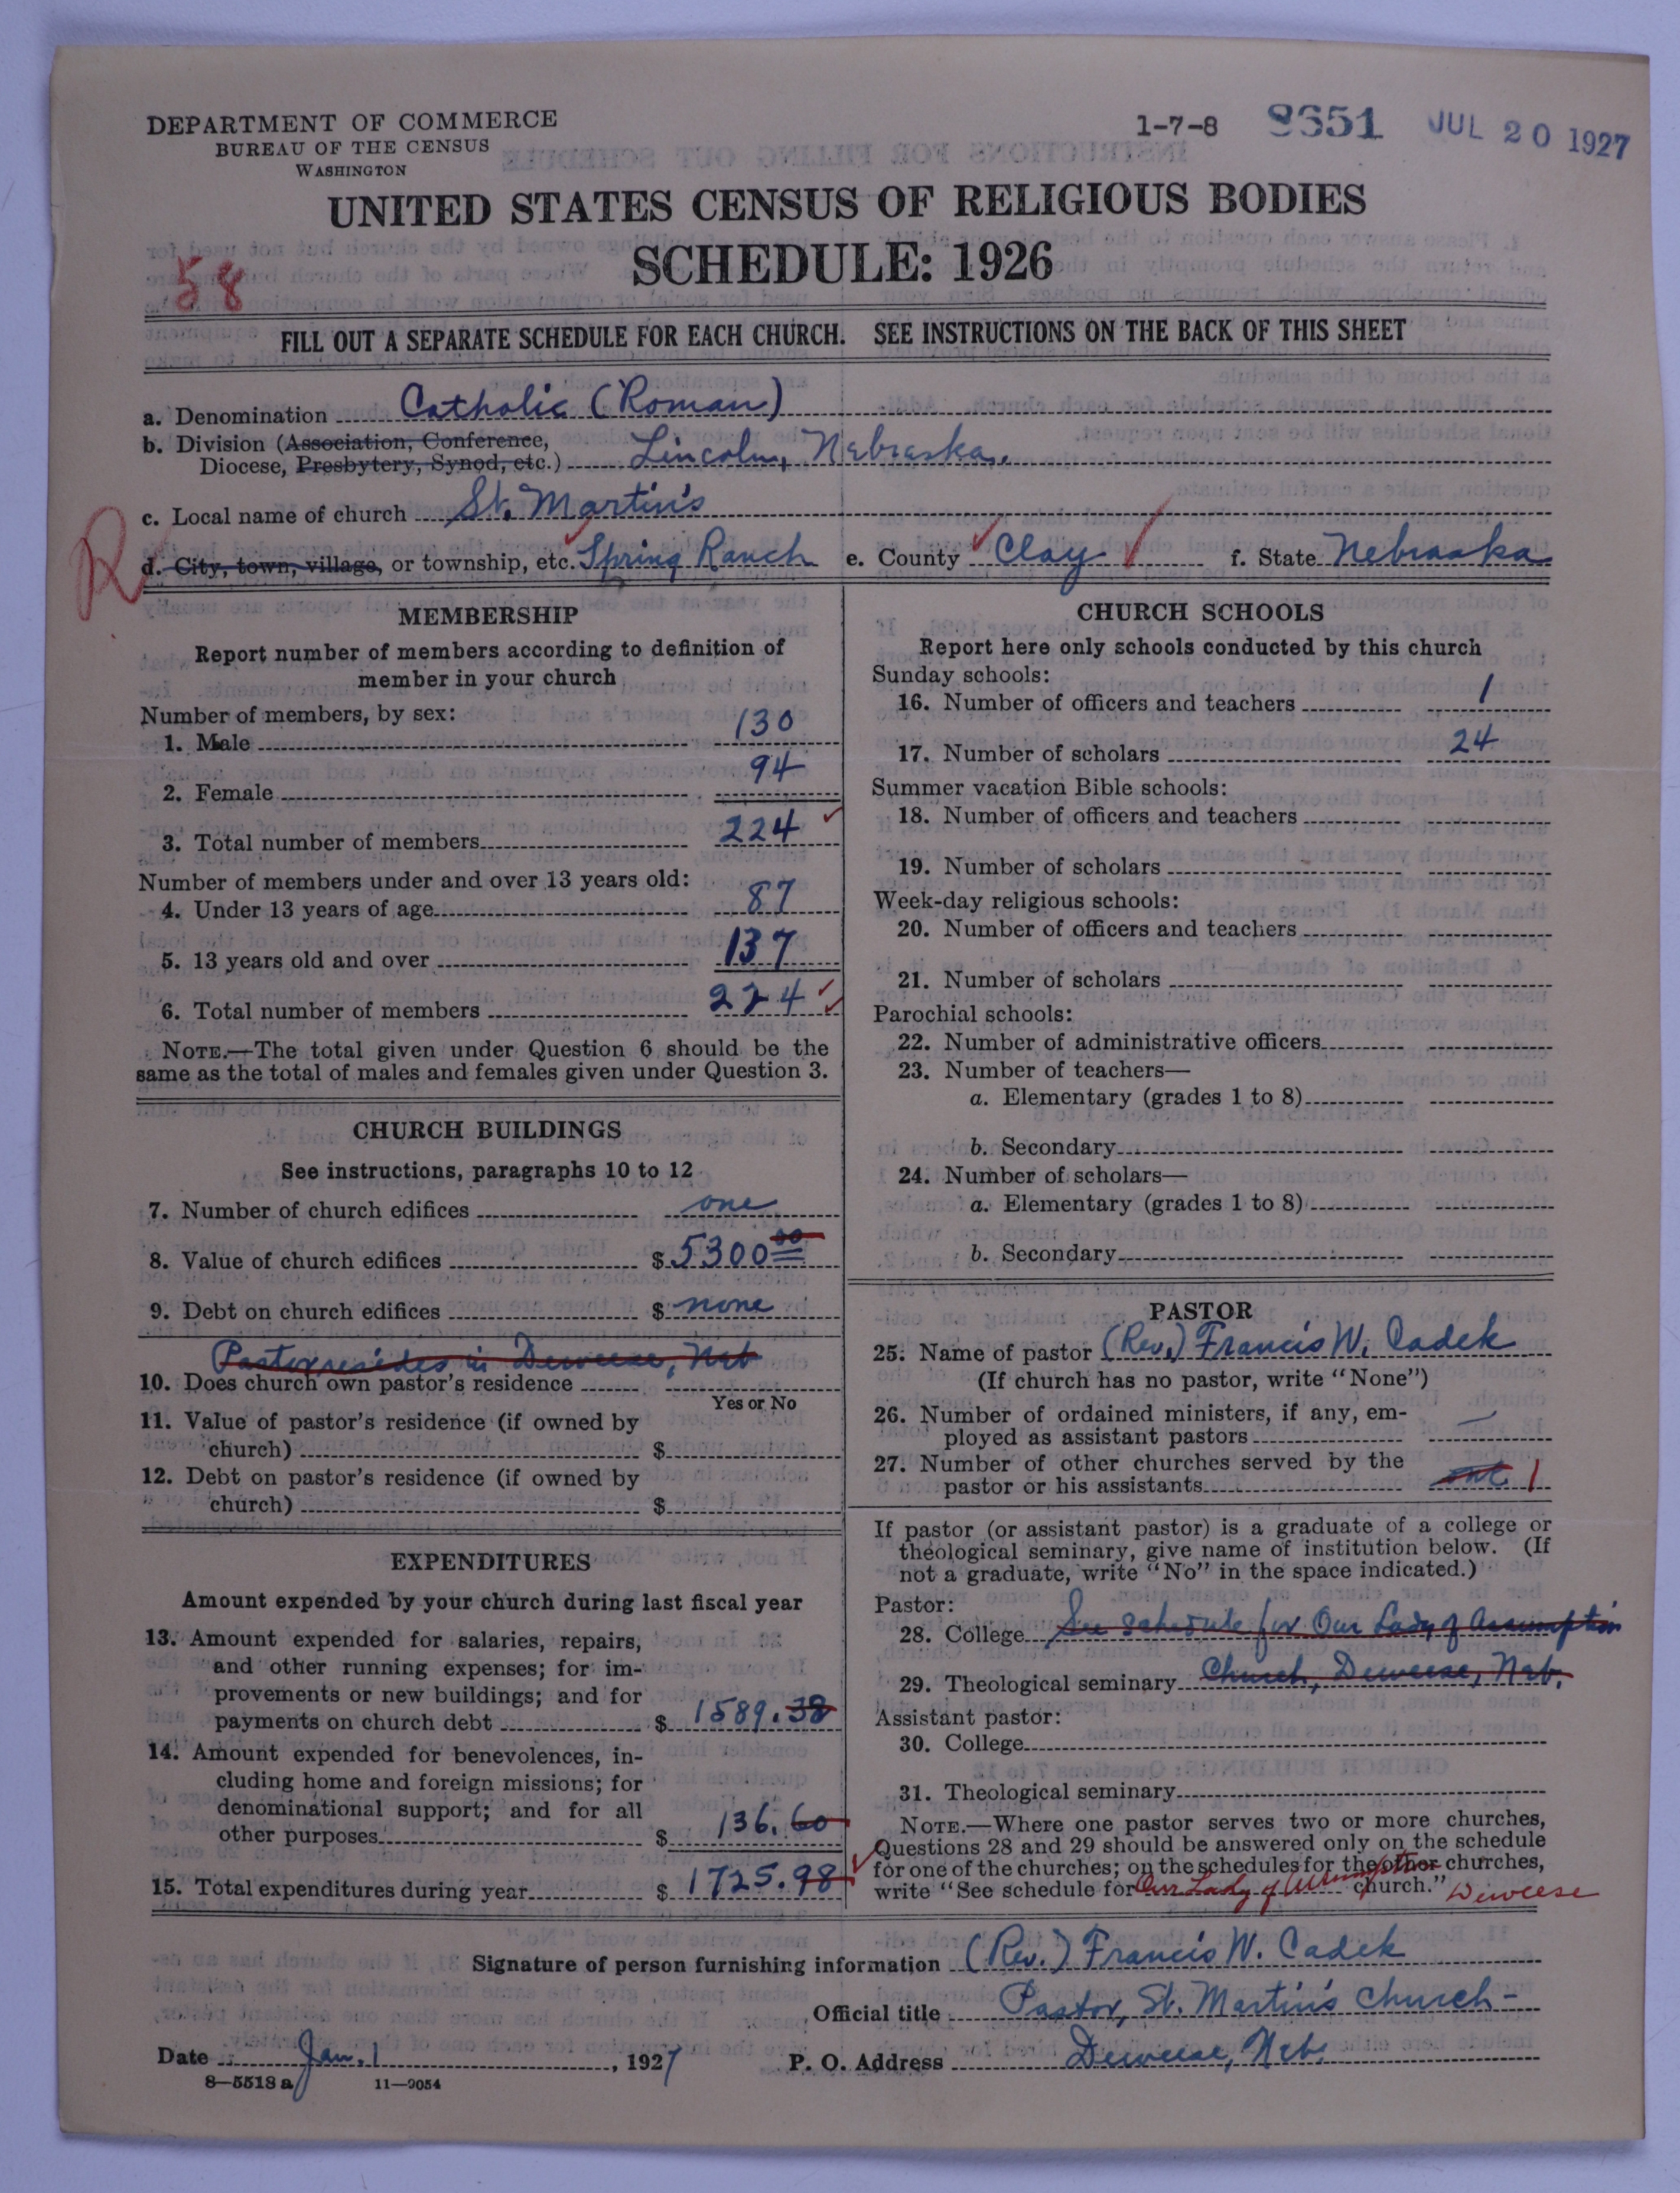 DEPARTMENT OF COMMERCE
BUREAU OF THE CENSUS
WASHINGTON
1-7-8 8651 JUL 20 1927
UNITED STATES CENSUS OF RELIGIOUS BODIES
SCHEDULE: 1926
58
FILL OUT A SEPARATE SCHEDULE FOR EACH CHURCH. SEE INSTRUCTIONS ON THE BACK OF THIS SHEET
a. Denomination Catholic (Roman)
b. Division (Association, Conference,
Diocese, Presbytery, Synod, etc.) Lincoln, Nebraska.
c. Local name of church St. Martin's
R
d. City, town, village, or township, etc. Spring Ranch e. County Clay f. State Nebraska
MEMBERSHIP
Report number of members according to definition of
member in your church
Number of members, by sex:
1. Male 130
2. Female 94
3. Total number of members 224
Number of members under and over 13 years old:
4. Under 13 years of age 87
5. 13 years old and over 137
6. Total number of members 224
NOTE.—The total given under Question 6 should be the
same as the total of males and females given under Question 3.
CHURCH BUILDINGS
See instructions, paragraphs 10 to 12
7. Number of church edifices one
8. Value of church edifices $ 5300 00
9. Debt on church edifices $ none
Pastor resides in Deweese, Neb
10. Does church own pastor's residence
Yes or No
11. Value of pastor's residence (if owned by
church) $
12. Debt on pastor's residence (if owned by
church) $
EXPENDITURES
Amount expended by your church during last fiscal year
13. Amount expended for salaries, repairs,
and other running expenses; for im-
provements or new buildings; and for
payments on church debt $ 1589.38
14. Amount expended for benevolences, in-
cluding home and foreign missions; for
denominational support; and for all
other purposes $ 136.60
15. Total expenditures during year $ 1725.98
CHURCH SCHOOLS
Report here only schools conducted by this church
Sunday schools:
16. Number of officers and teachers 1
17. Number of scholars 24
Summer vacation Bible schools:
18. Number of officers and teachers
19. Number of scholars
Week-day religious schools:
20. Number of officers and teachers
21. Number of scholars
Parochial schools:
22. Number of administrative officers
23. Number of teachers—
a. Elementary (grades 1 to 8)
b. Secondary
24. Number of scholars—
a. Elementary (grades 1 to 8)
b. Secondary
PASTOR
25. Name of pastor (Rev.) Francis W. Cadek
(If church has no pastor, write "None")
26. Number of ordained ministers, if any, em-
ployed as assistant pastors —
27. Number of other churches served by the
pastor or his assistants one 1
If pastor (or assistant pastor) is a graduate of a college or
theological seminary, give name of institution below. (If
not a graduate, write "No" in the space indicated.)
Pastor:
28. College See schedule for Our Lady of Assumption
29. Theological seminary Church, Deweese, Neb.
Assistant pastor:
30. College
31. Theological seminary
NOTE.—Where one pastor serves two or more churches,
Questions 28 and 29 should be answered only on the schedule
for one of the churches; on the schedules for the other churches,
write "See schedule for Our Lady of church." Deweese
Signature of person furnishing information (Rev.) Francis W. Cadek
Official title Pastor, St. Martin's Church -
Date Jan. 1, 1927 P. O. Address Deweese, Neb.
8—5518 a 11—9054